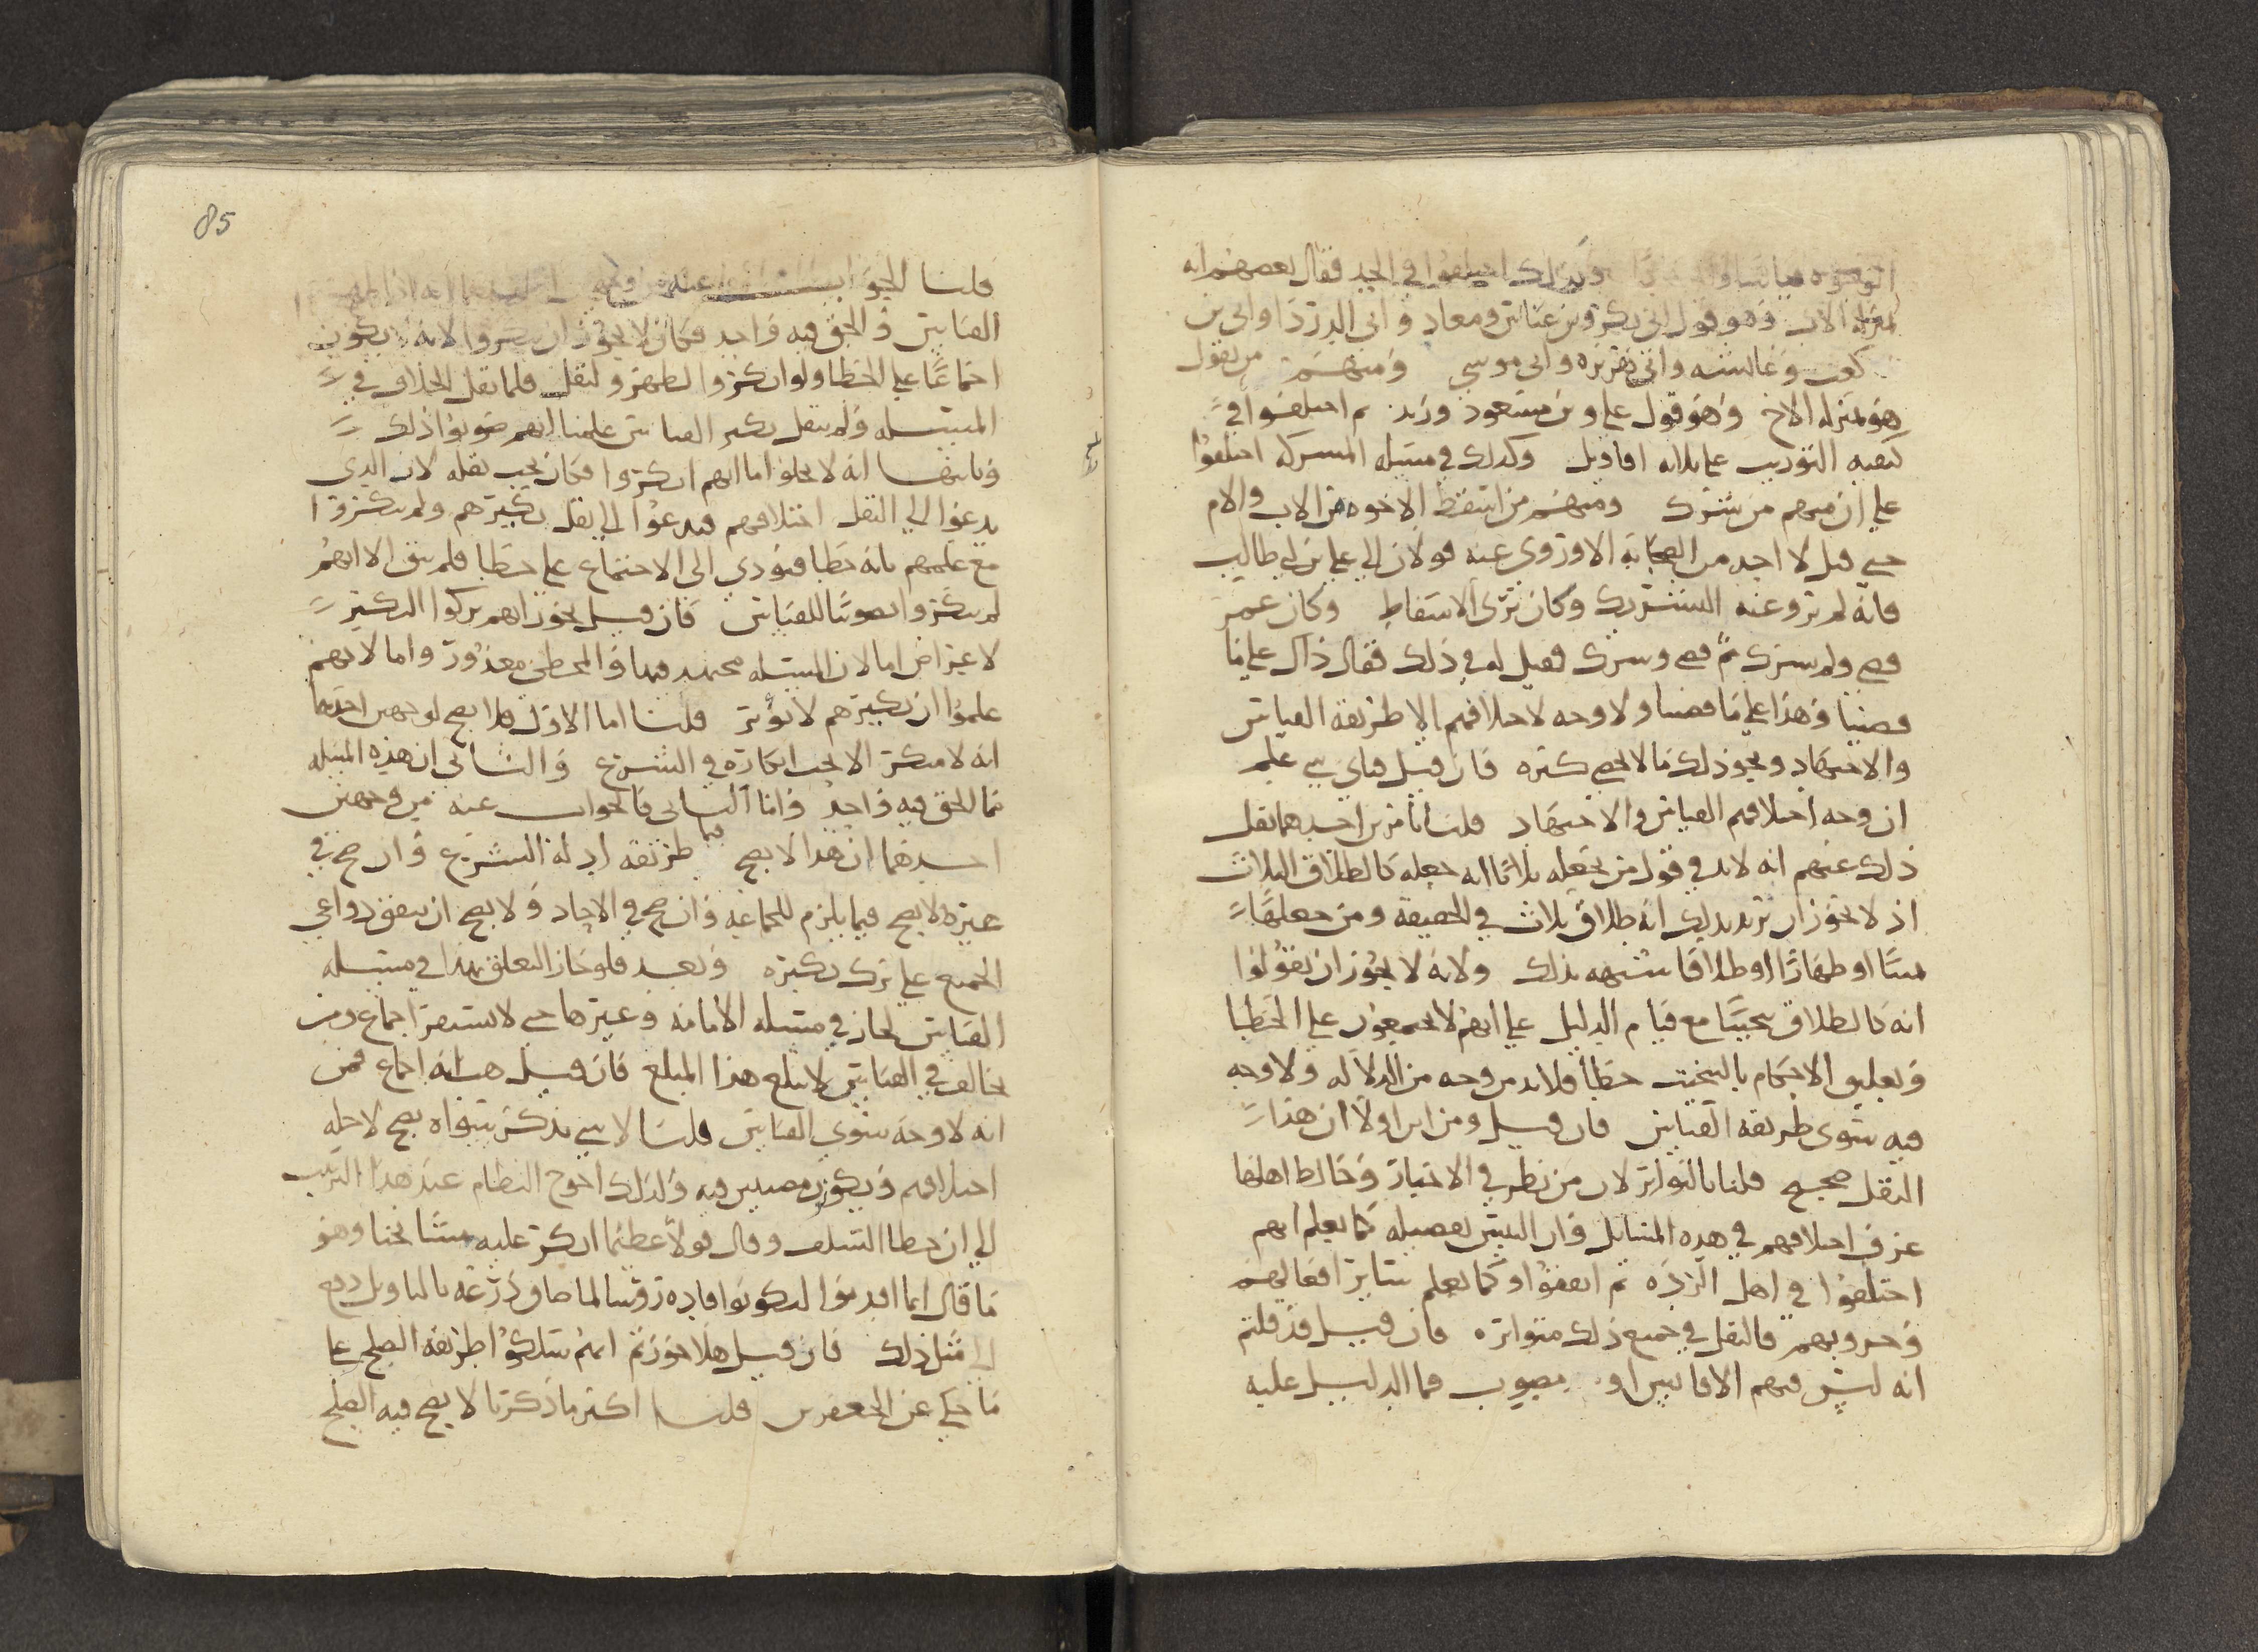 وكذلك اختلفوا في الجد فقال بعضهم انه
بمنزلة الاب وهو قول ابي بكر وبن عباس ومعاد وابي الدردا وابي بن
كعب وعائشه وابي هريره وابي موسى ومنهم من يقول
هو بمنزلة الاخ وهو قول علي وبن مسعود وزيد ثم اختلفوا في
كيفيه التوريث على ثلاثه اقاويل وكذلك في مسئله المشركه اختلفوا
علي ان منهم من شرك ومنهم من اسقط الاخوه من الاب والام
حتى قيل لا احد من الصحابه الا وروى عنه قولان الى علي بن ابي طالب
فانه لم يرو عنه التشريك وكان يرى الاسقاط وكان عمر
قضى ولم يشرك ثم قضى وشرك فقيل له في ذلك فقال ذاك على ما
قضينا وهذا على ما قضينا ولا وجه لاختلافهم الا طريقه القياس
والاجتهاد ونحو ذلك مما لا يحصى كثره فان قيل فباي شي علم
ان وجه اختلافهم القياس والاجتهاد قلنا بامرين احدهما نقل
ذلك عنهم انه لابد في قول من يجعله ثلاثا انه جعله كالطلاق الثلاث
اذ لا يجوز ان يريد بذلك انه طلاق ثلاث في الحقيقه ومن جعلها
يمينا او ظهارا او طلاقا شبهه بذلك ولانه لا يجوز ان يقولوا
انه كالطلاق تبخيتا مع قيام الدليل على انهم لا يجمعون على الخطا
وتعليق الاحكام بالتبخيت خطا فلابد من وجه من الدلاله ولا وجه
فيه سوى طريقه القياس فان قيل ومن اين اولا ان هذا
النقل صحيح قلنا بالتواتر لان من نظر في الاخبار وخالط اهلها
عرف اختلافهم في هذه المسائل وان التبس تفصيله كما يعلم انهم
اختلفوا في اهل الرده ثم اتفقوا وكما يعلم سائر افعالهم
وحروبهم فالنقل في جميع ذلك متواتره فان قيل قد قلتم
انه ليس فيهم الا قايس او مصوب فما الدليل عليه
85
قلنا الجواب عنه من وجهين
القياس والحق فيه واحد فكان لا يجوز ان يقروا لانه يكون
اجماعا على الخطا ولو انكروا لظهر ولنقل فلما نقل الخلاف في
المسئله ولم ينقل نكير القياس علمنا انهم صوبوا ذلك
وثانيها انه لا يخلوا اما انهم انكروا فكان يجب نقله لان الذي
يدعوا الى النقل اختلافهم فيدعوا الى نقل نكيرهم ولم ينكروا
مع علمهم بانه خطا فيؤدي الى الاجتماع على خطا فلم يبق الا انهم
لم ينكروا تصويبا للقياس فان قيل يجوز انهم تركوا النكير
لاعتراض اما لان المسئله مجتهد فيها والمخطئ معذور واما لانهم
علموا ان نكيرهم لا يؤثر قلنا اما الاول فلا يصح لوجهين احدهما
انه لا منكر الا يجب انكاره في الشرع والثاني ان هذه المسئله
مما الحق فيه واحد واما الثاني فالجواب عنه من وجهين
احدهما ان هذا لا يصح فيما طريقه ادلة الشرع وان صح في
غيره لا يصح فيما يلزم للجماعه وان صح في الاحاد ولا يصح ان يتفق دواعي
الجميع على ترك نكيره وبعد فلو جاز التعلق بهذا في مسئله
القياس لجاز في مسئله الامامه وغيرها حتى لا يستقر اجماع ومن
يخالف في القياس لا يبلغ هذا المبلغ فان قيل هب انه اجماع فمن
انه لا وجه سوى القياس قلنا لا شي يذكر سواه يصح لاجله
اختلافهم ويكونون مصيبين فيه ولذلك احوج النظام عند هذا الترتيب
الى ان خطا السلف وقال قولا عظيما انكر عليه مشائخنا وهو
ما قال انما اقدموا ليكونوا قاده رؤسا
الى مثل ذلك فان قيل هلا جوزتم انهم سلكوا طريقه الصلح على
ما حكي عن الجعفرين قلنا اكثر ما ذكرنا لا يصح فيه الصلح